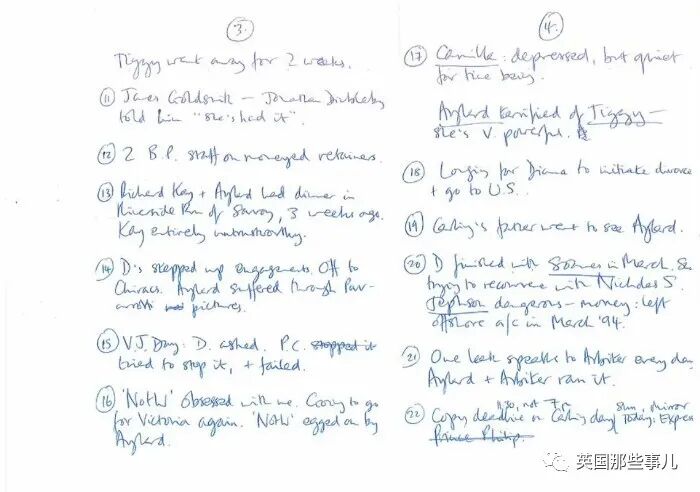 3.
Tiggy went away for 2 weeks.
11 James Goldsmith — Jonathan Dimbleby
told him "she's had it".
12 2 B.P. staff on moneyed retainers.
13 Richard Kay + Aylard had dinner in
Riverside Rm of Savoy, 3 weeks ago.
Kay entirely untrustworthy.
14 D's stepped up engagements. Off to
Chiracs. Aylard suffered through Pav-
arotti pictures.
15 V.J. Day: D. asked. P.C. stopped it
tried to stop it, + failed.
16 'Nothi' obsessed with me. Going to go
for Victoria again. 'Nothi' egged on by
Aylard.
4.
17 Camilla: depressed, but quiet
for time being.
Aylard terrified of Tiggy —
she's v. powerful.
18 Longing for Diana to initiate divorce
+ go to U.S.
19 Carling's father went to see Aylard.
20 D finished with Soames in March. Se
trying to reconvene with Nicholas S.
Jephson dangerous — money: left
offshore a/c in March '94.
21 One leak speaks to Arbiter every day
Aylard + Arbiter ran it.
11.30, not 7
22 Copy deadline on Carling day Sun, Mirror
Today: Express
Prince Philip.
英国那些事儿